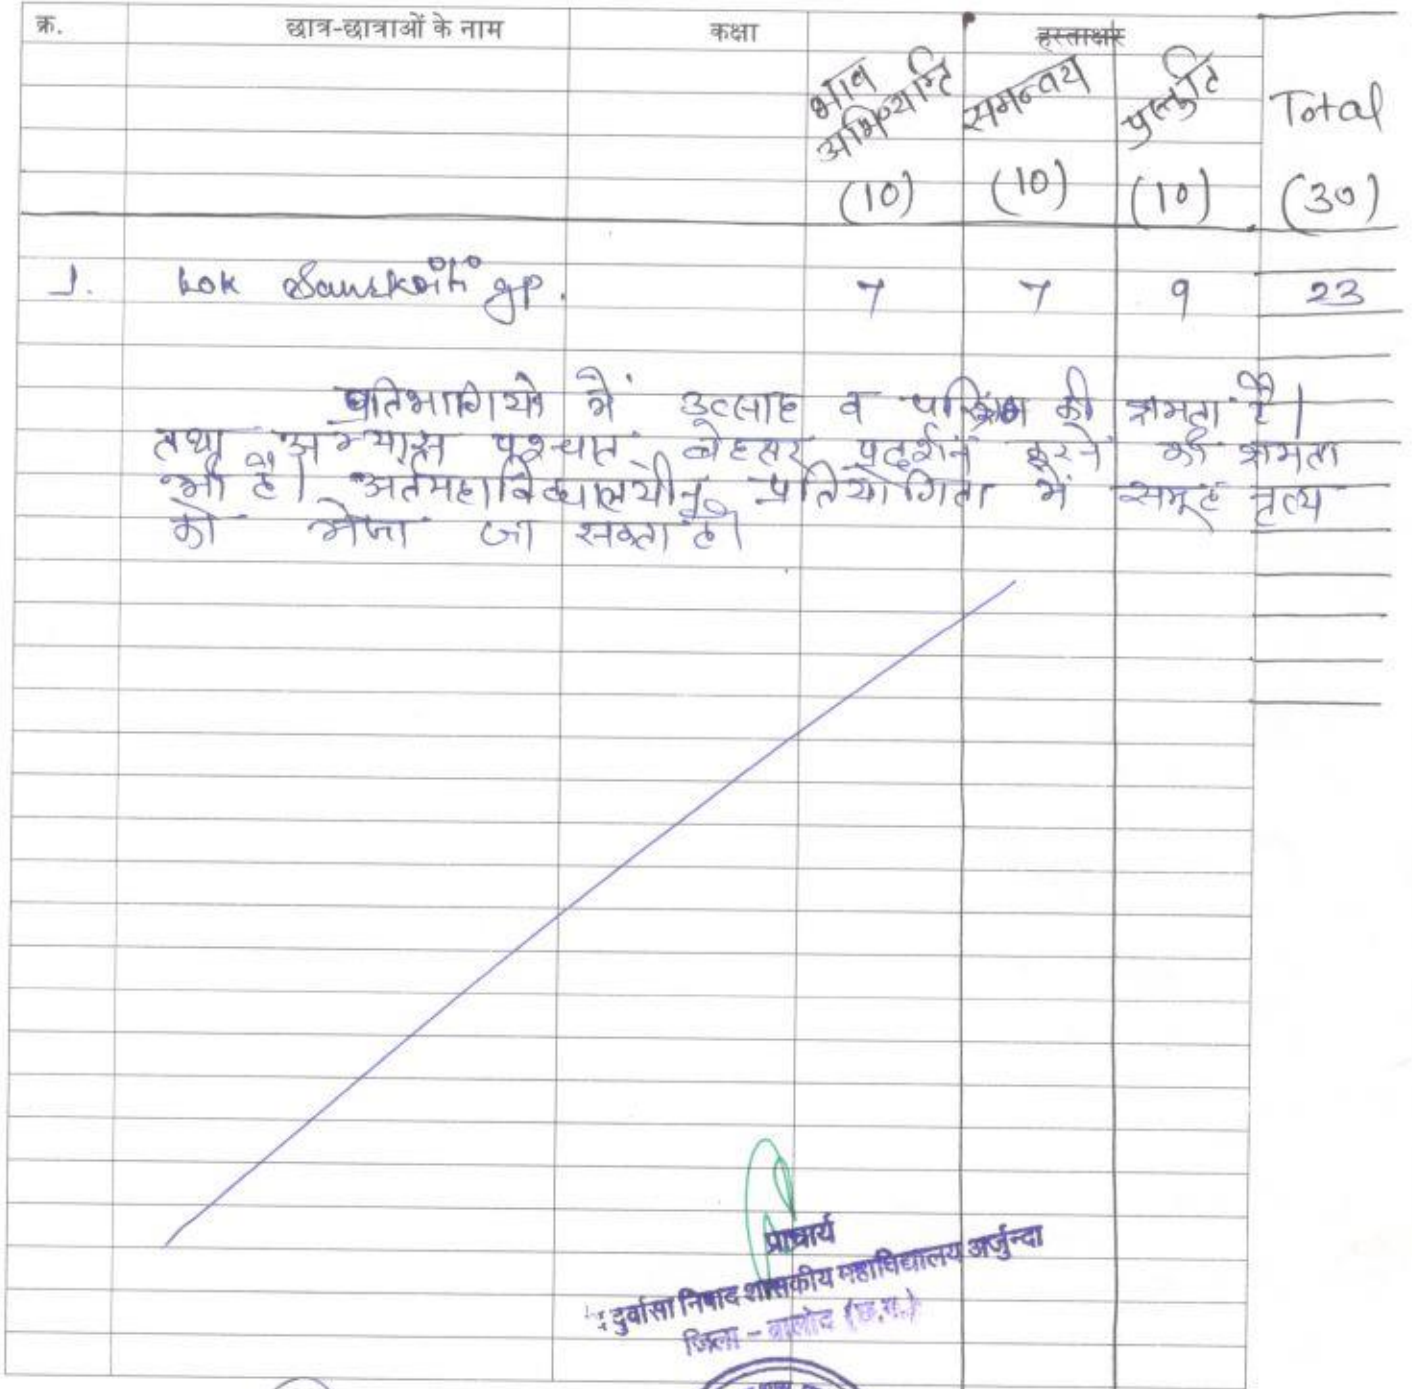 क्र. छात्र-छात्राओं के नाम कक्षा हस्ताक्षर
भाव अभिव्यक्ति समन्वय प्रस्तुति Total
(10) (10) (10) (30)
1. Lok Sanskriti gp. 7 7 9 23
प्रतिभागियो में उत्साह व परिश्रम की क्षमता है।
तथा अभ्यास पश्चात बेहतर प्रदर्शन करने की क्षमता
भी है। अर्तमहाविद्यालयीन प्रतियोगिता में समूह नृत्य
को भेजा जा सकता है।
प्राचार्य
दुर्वासा निषाद शासकीय महाविद्यालय अर्जुन्दा
जिला - बालोद (छ.ग.)